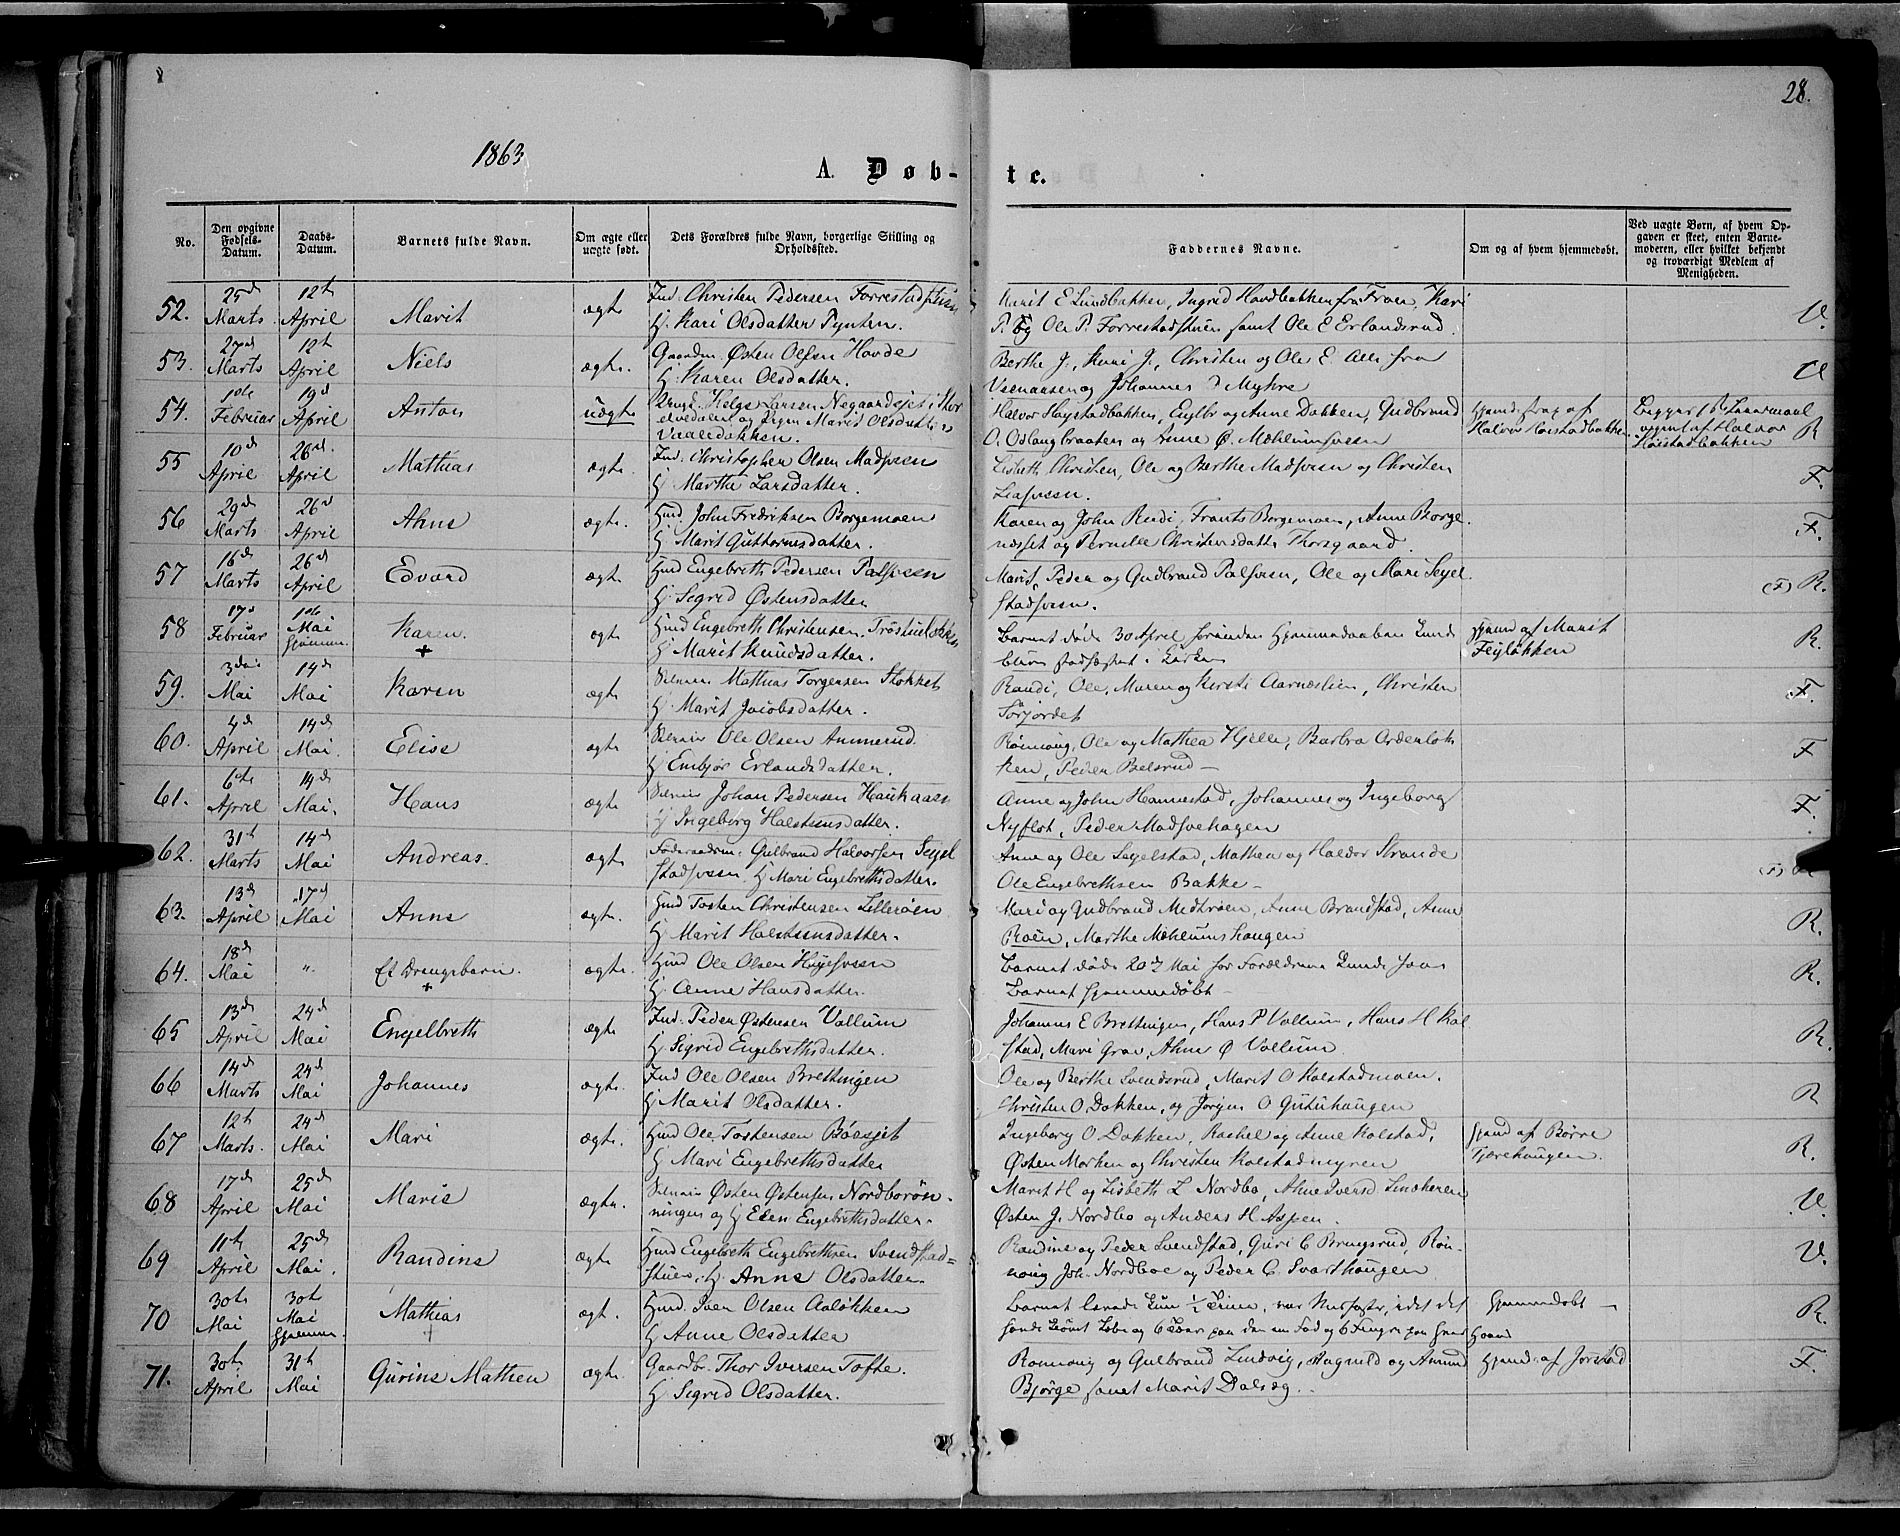 28.
1863
A. Døb-
te.
No.
Den opgivne Fødsels-Datum.
Daabs-Datum.
Barnets fulde Navn.
Om ægte eller uægte født.
Dets Forældres fulde Navn, borgerlige Stilling og Opholdssted.
Faddernes Navne.
Om og af hvem hjemmedøbt.
Ved uægte Børn, af hvem Opgaven er skeet, enten Barnemoderen, eller hvilket bekjendt og troværdigt Medlem af Menigheden.
52. 25d Marts 12te April Marit ægte Ind. Christen Pedersen Forrestadstuen
H. Kari Olsdatter Pynten.
Marit E Lundbakken, Ingrid Hovdbakken fra Froen, Kari
P. og Ole P. Forrestadstuen samt Ole E Erlandsrud. U.
53. 27de Marts 12te April Niels ægte. Gaardm. Østen Olsen Hovde
H. Karen Olsdatter.
Berthe J., Kari J., Christen og Ole E. alle fra
og Johannes D Myhre U
54. 1ste Februar 19d April Anton uægte Helge Larsen Negaardsejet i Stor
elvedalen og Pigen Marit Olsdatter
Vaaledokken.
Halvor Høystadbakken, Engbr og Anne Dokken, Gudbrand
O. Oslangbraaten og Anne Ø. Mæhlumsveen
Hjemd. af
Halvor Høistadbakken
af Halvor
Høistadbakken R
55 10d April 26d April Mathias ægte. Ind. Christopher Olsen Madsveen
H. Marthe Larsdatter.
Lisbeth Christen, Ole og Berthe Madsveen og Christen
F.
56 29d Marts 26d April Ahne ægte. Hmd. John Fredriksen Borgemoen
H. Marit Guttormsdatter.
Karen og John Rudi, Frants Borgemoen, Anne Borge
næsset og Pernille Christensdatt. Thorsgaard. F.
57 16d Marts 26d April Edvard ægte Hmd Engebreth Pedersen Palsveen
H. Segrid Østensdatter
Marit, Peder og Gudbrand Palsveen, Ole og Mari Segel
stadsveen. (F) R.
58 17d Februar 1ste Mai Hjemme. Karen. + ægte Hmd Engebreth Christensen
H. Marit Knudsdatter.
Barnet døde 30 April forinden Hjemmedaaben kunde
blive stadfæstet i Kirken
Hjemd af Marit
Fligløkken R.
59. 3die Mai 14d Mai Karen ægte Mathias Torgersen Stokket
H. Marit Jacobsdatter.
Randi, Ole, Maren og Kirsti Aarneslien, Christen
Sørjordet F.
60. 4d April 14d Mai. Elise ægte Ole Olsen Ammerud.
H Embjør Erlandsdatter.
Rønnaug, Ole og Mathea Hjelle, Barbra Orderløk
ken, Peder Belsrud — F
61. 6te April 14d Mai. Hans ægte Johan Pedersen Haukaasen
H Ingeborg Halstensdatter.
Anne og John Hammestad, Johannes og Ingeborg
Nyfløt, Peder Madsvehagen F.
62. 31te Marts 14d Mai Andreas. ægte Føderaadsm. Gulbrand Halvorsen Segel
stadsveen. H Mari Engebrethsdatter.
Anne og Ole Segelstad, Mathea og Halvor Strande
Ole Engebrethsen Bakke — (F) R
63. 13d April 17d Mai Anne ægte. Hmd Tosten Christensen Lillerøen
H. Marit Halstensdatter.
Mari og Gudbrand Medtrøen, Anne Brandstad, Anne
Røen, Marthe Mæhlumshaugen R.
64. 18d Mai " Et Drengebarn. + ægte. Hmd Ole Olsen Høyesveen
H. Anne Hansdatter.
Barnet døde 20de Mai før Forældrene kunde faae
Barnet hjemmedøbt — R.
65 13d April 24d Mai Engelbreth ægte Ind. Peder Østensen Vollum
H. Segrid Engebrethsdatter.
Johannes E Brettingen, Hans P Vollum, Hans H Kol
stad, Mari Grov, Ahne Ø Vollum. R.
66 14d Marts 24d Mai Johannes ægte. Ind Ole Olsen Brettingen
H Marit Olsdatter.
Ole og Berthe Svendsrud, Marit O Kolstadmoen.
Christen O. Dokken, og Jørgen O Gutuhaugen R
67 12te Marts. 24d Mai Mari ægte. Hmd Ole Tostensen Bøessjet
H Mari Engebrethsdatter
Ingeborg O Dokken, Rachel og Anne Kolstad,
Østen Morken og Christen Kolstadmyren
Hjemd af Børre
Tjærehaugen. R.
68 17d April 25d Mai Marie ægte. Østen Østensen Nordborøn-
ningen og H Elen Engebrethsdatter.
Marit H og Lisbeth L Nordbo, Ahne Iversd. Linkeren
Østen J. Nordbo og Anders H Aspen. U.
69 11te April 25d Mai. Randine ægte Hmd Engebreth Engebrethsen Svendstad-
stuen, H. Anne Olsdatter.
Randine og Peder Svendstad, Guri C Brungsrud, Røn-
naug Joh. Nordboe og Peder C. Svarthaugen U.
70 30te Mai 30te Mai Hjemme. Mathias + ægt. Hmd. Iver Olsen Aaløkken
H Anne Olsdatter
Barnet levede kun 1/2 Time, var Misfoster, idet det
havde kløvet Læbe og 6 Tæer paa den ene Fod og 6 Fingre paa hver Haand
Hjemmedøbt — R.
71. 30te April 31te Mai Gurine Mathea ægte. Gaardbr. Thor Iversen Tofte.
H Segrid Olsdatter.
Rønnaug og Gulbrand Lindvig, Ragnild og Amund
Bjørge samt Marit Dalseg.
Hjemd. af Jørstad F.